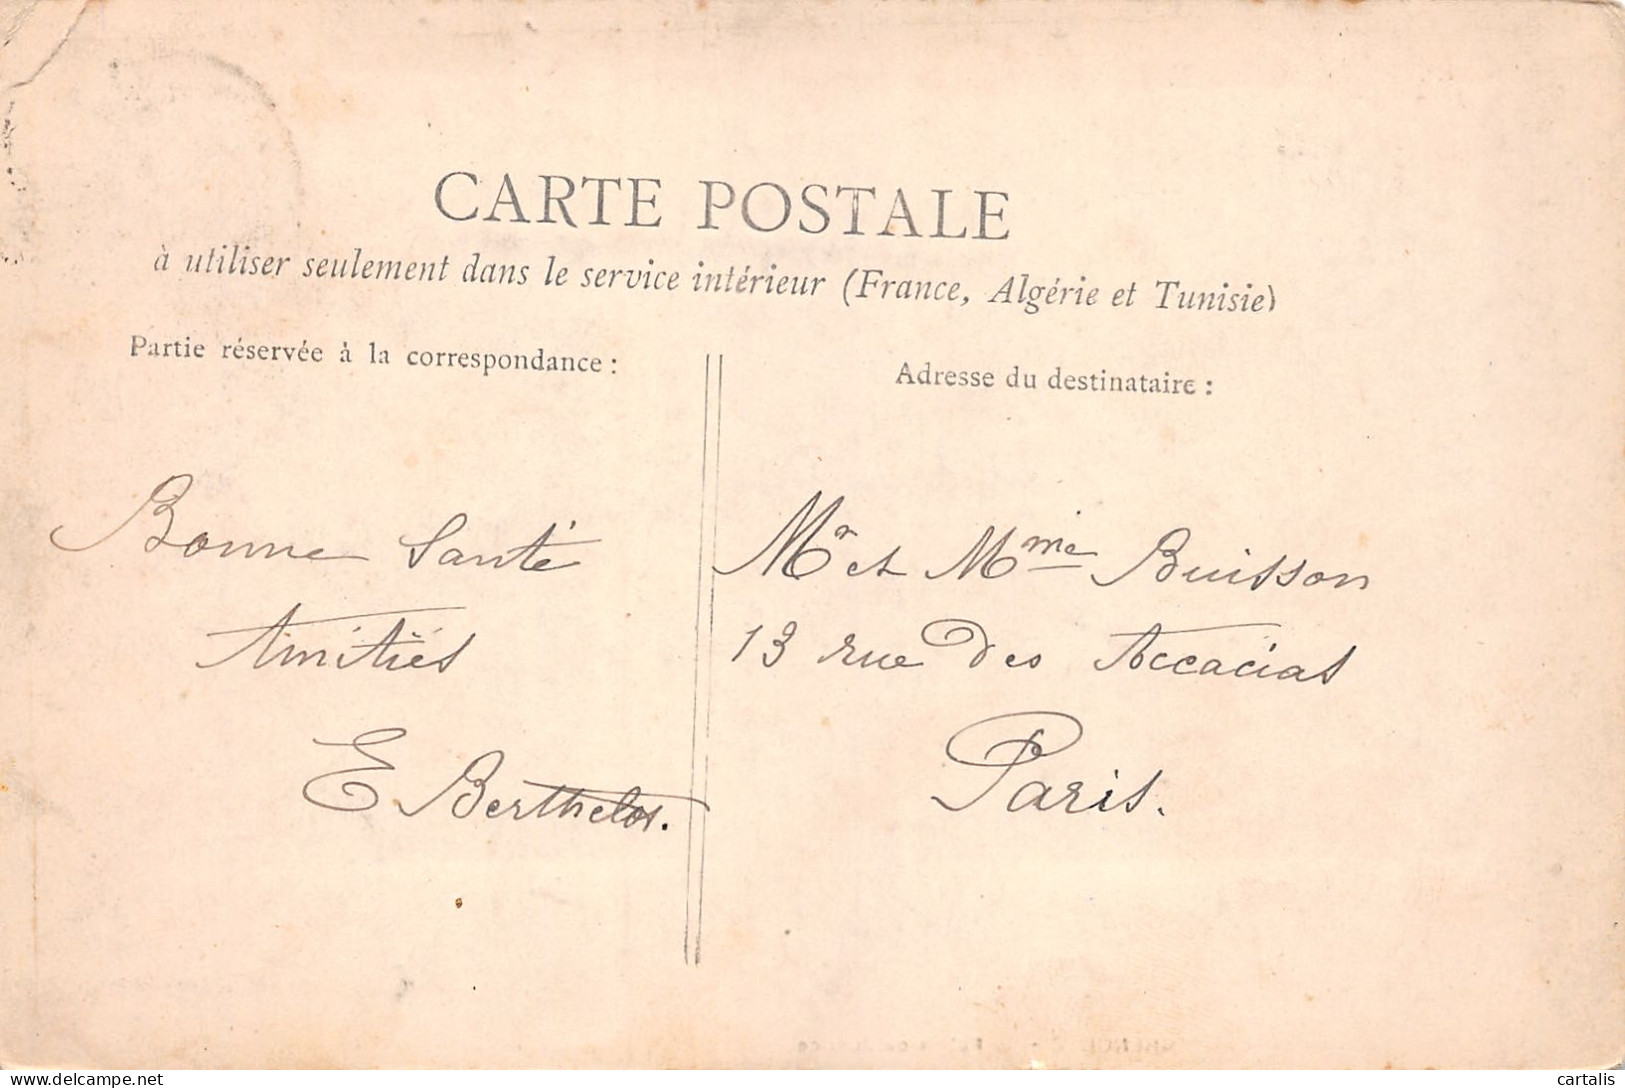 CARTE POSTALE
à utiliser seulement dans le service intérieur (France, Algérie et Tunisie)
Partie réservée à la correspondance :
Adresse du destinataire :
Bonne Santé
Amitiés
E Berthelot.
Mr et Mme Buisson
13 rue des Accacias
Paris.
www.delcampe.net
cartalis